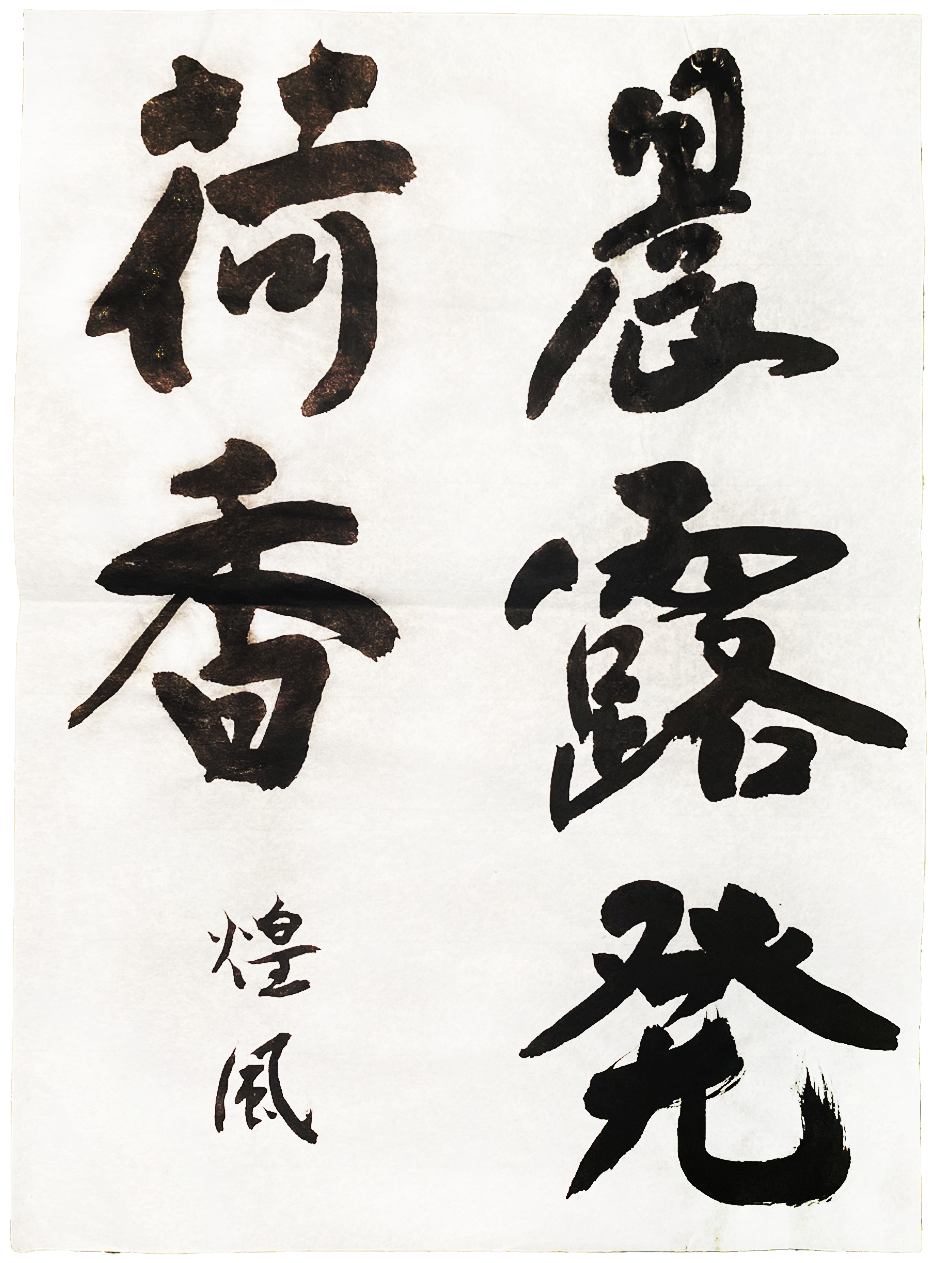 晨露発
荷香
煌風